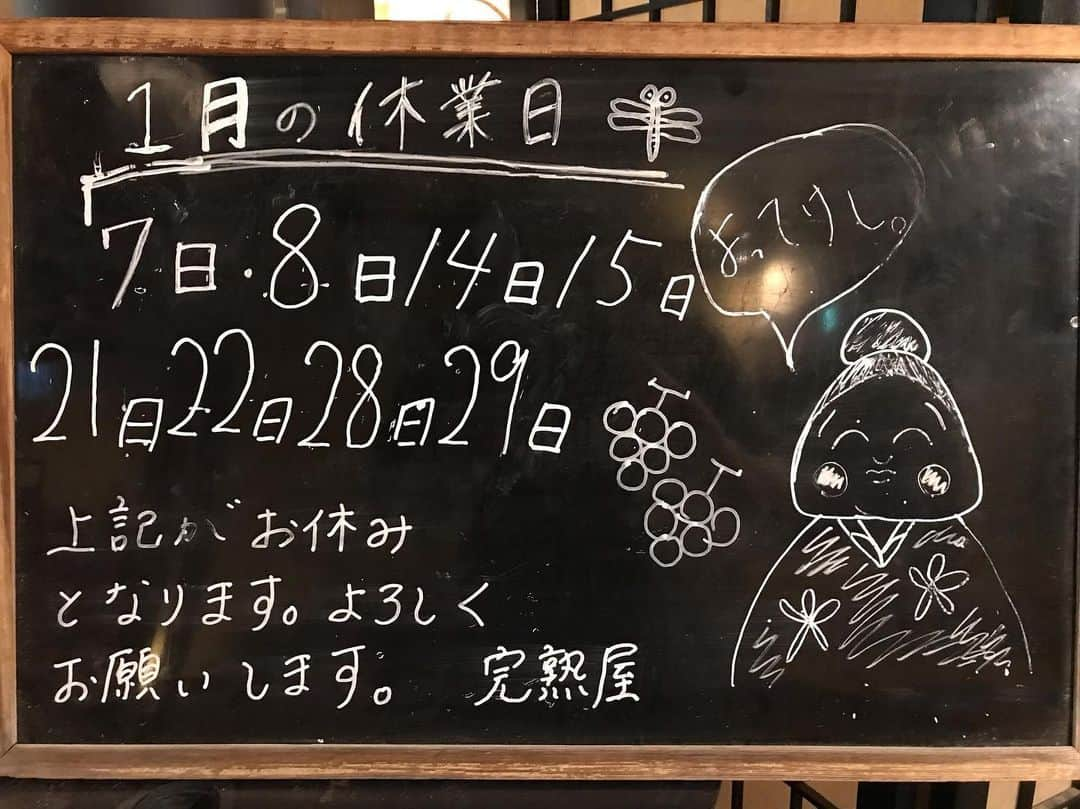 1月の休業日
7日・8日14日15日
21日22日28日29日
上記がお休み
となります。よろしく
お願いします。 完熟屋
よってけし。